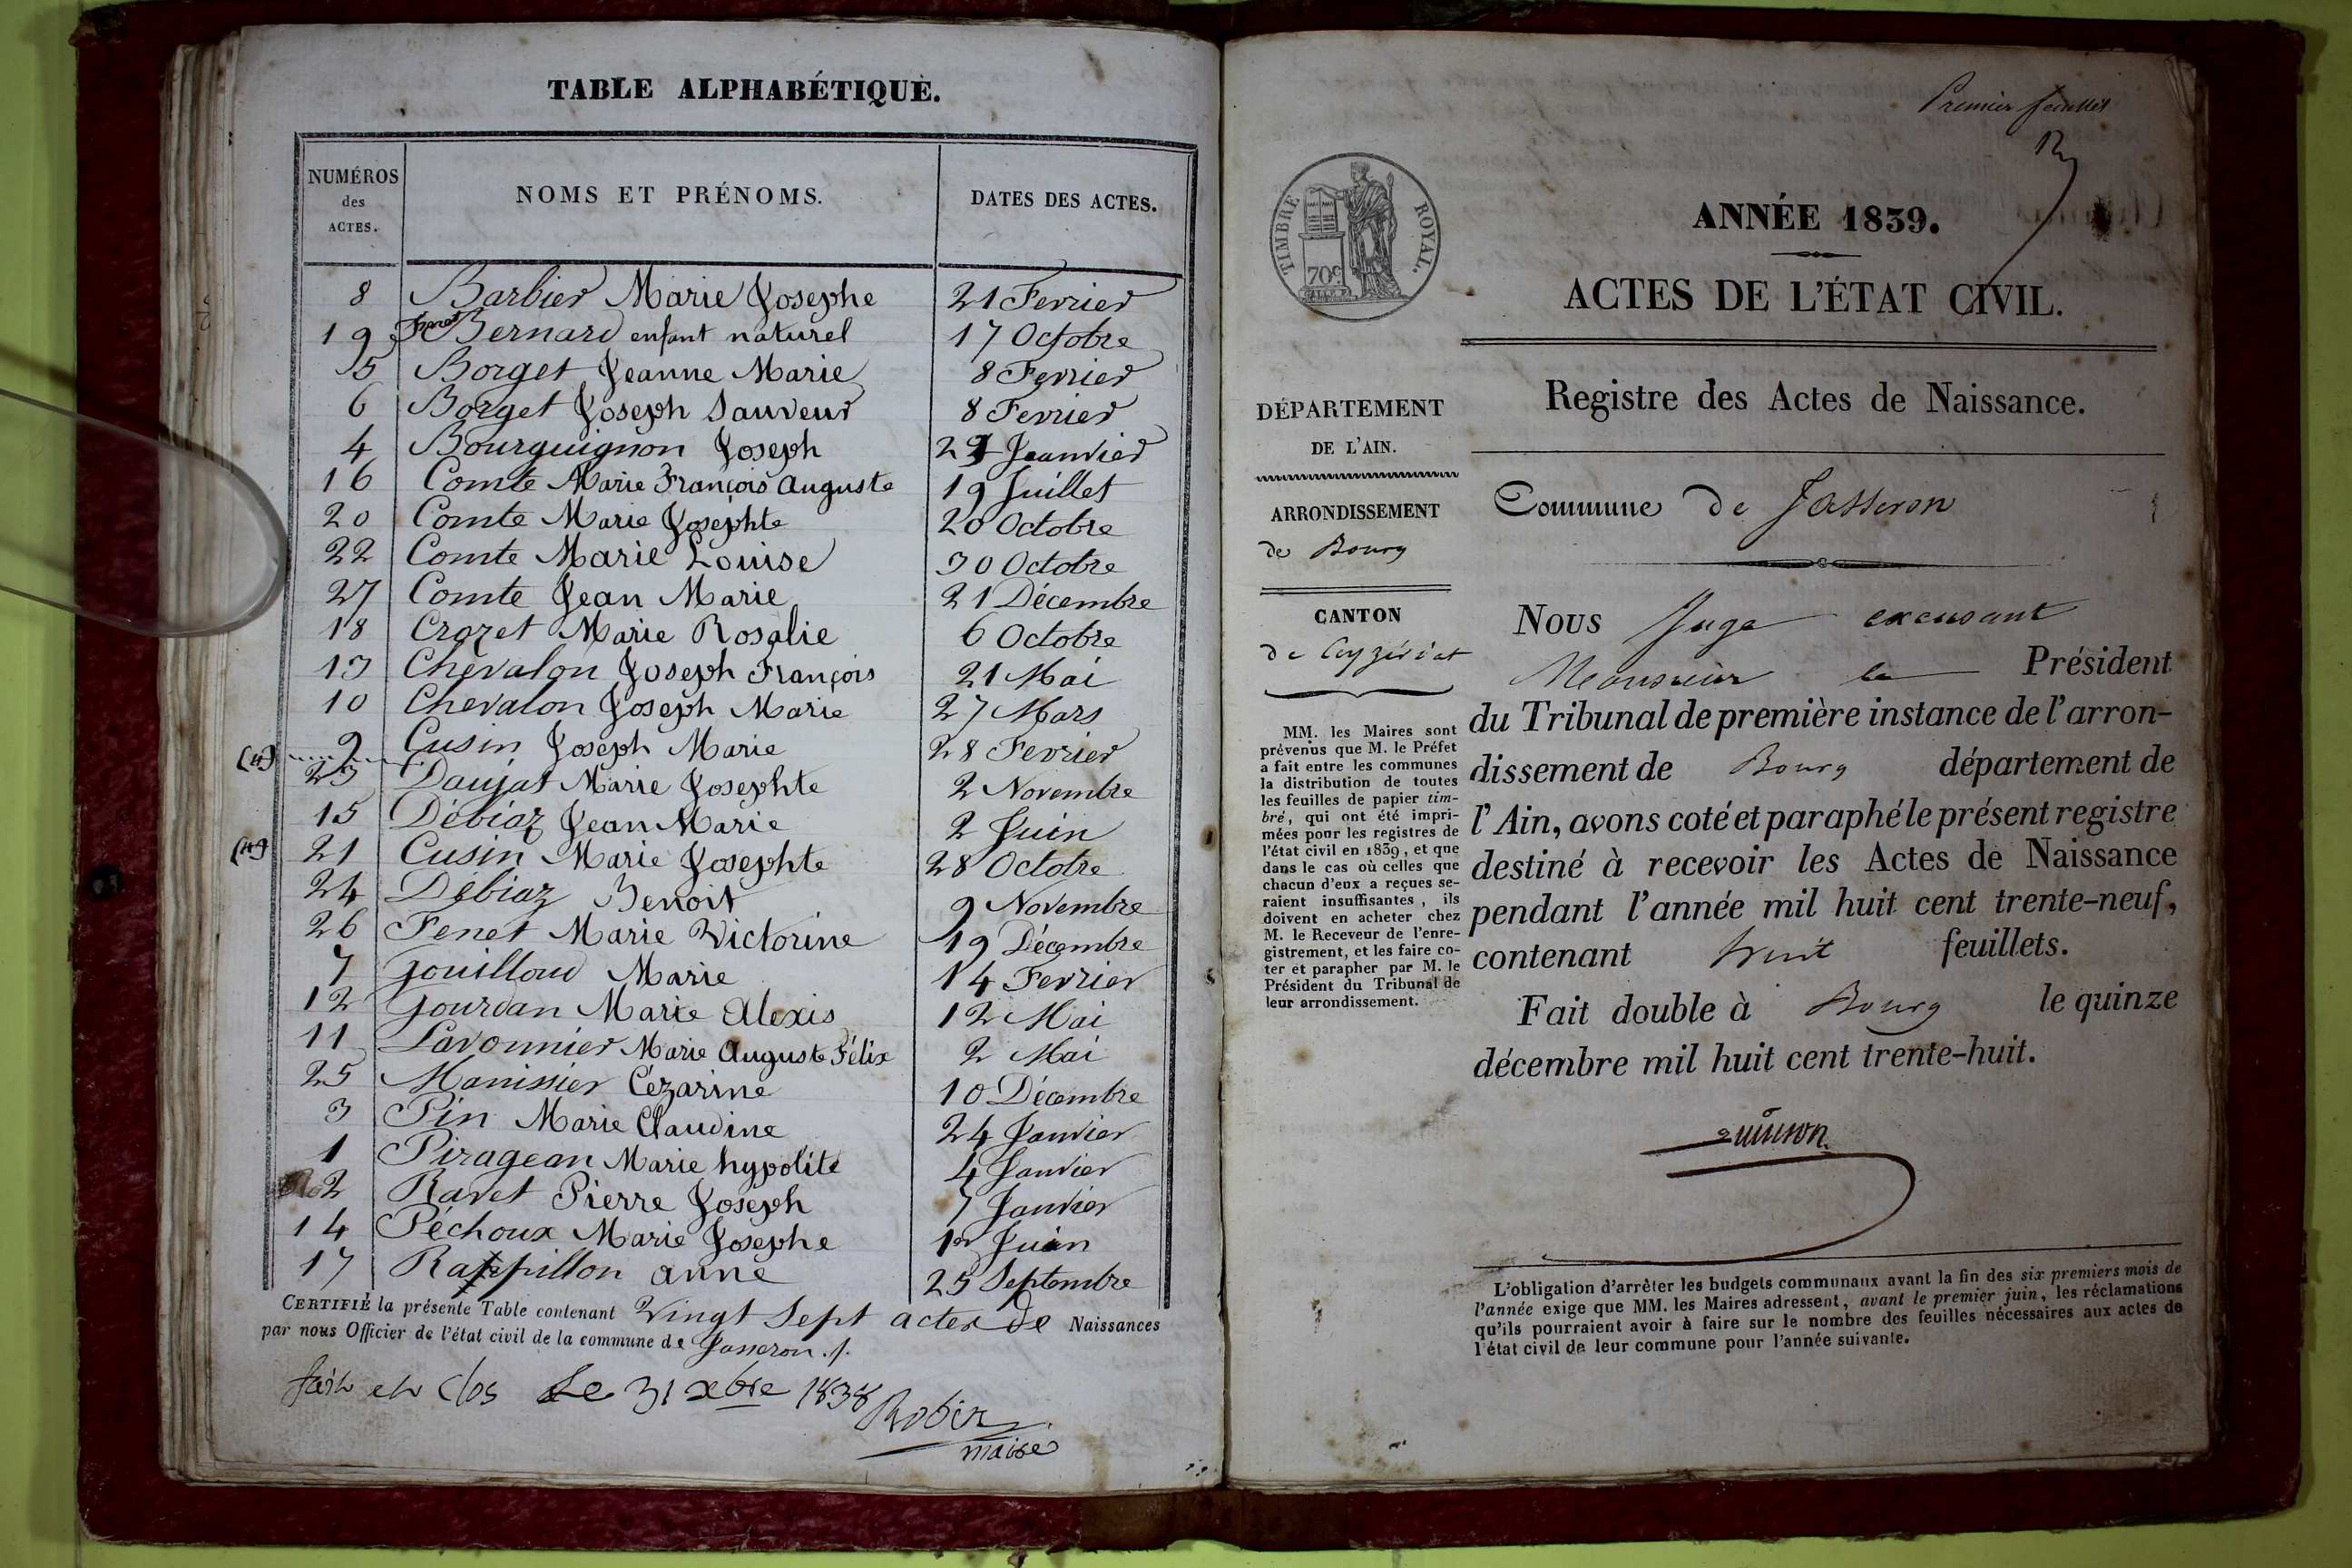 TABLE ALPHABÉTIQUE.
NUMÉROS des ACTES. NOMS ET PRÉNOMS. DATES DES ACTES.
8 Barbier Marie Josephe 21 Fevrier
19 Bernard enfant naturel 17 Octobre
5 Borget Jeanne Marie 8 Fevrier
6 Borget Joseph Sauveur 8 Fevrier
4 Bourguignon Joseph Jeanvier
16 Comte Marie François Auguste 19 Juillet
20 Comte Marie Josephte 20 Octobre
22 Comte Marie Louise 30 Octobre
27 Comte Jean Marie 21 Décembre
18 Crozet Marie Rosalie 6 Octobre
13 Chevalon Joseph François 21 Mai
10 Chevalon Joseph Marie 27 Mars
9 Cusin Joseph Marie 28 Fevrier
23 Daujat Marie Josephte 2 Novembre
15 Débiaz Jean Marie 2 Juin
21 Cusin Marie Josephte 28 Octobre
24 Débiaz Benoit 9 Novembre
26 Fenet Marie Victorine 19 Décembre
7 Jouilloud Marie 14 Fevrier
12 Jourdan Marie Alexis 12 Mai
11 Lavonnier Marie Auguste Félix 2 Mai
25 Manissier Cézarine 10 Décembre
3 Pin Marie Claudine 24 Janvier
1 Piragean Marie hypolite 4 Janvier
2 Ravet Pierre Joseph 7 Janvier
14 Péchoux Marie Josephe Juin
17 Rappillon anne 25 Septembre
CERTIFIÉ la présente Table contenant Vingt Sept actes de Naissances
par nous Officier de l'état civil de la commune de Jasseron ./.
fait et clos Le 31 xbre 1838
Robin
maire
Premier feuillet
TIMBRE ROYAL.
70c
ANNÉE 1839.
ACTES DE L'ÉTAT CIVIL.
Registre des Actes de Naissance.
DÉPARTEMENT
DE L'AIN.
ARRONDISSEMENT
de Bourg
CANTON
de Ceyzériat
MM. les Maires sont
prévenus que M. le Préfet
a fait entre les communes
la distribution de toutes
les feuilles de papier tim-
bré, qui ont été impri-
mées pour les registres de
l'état civil en 1839, et que
dans le cas où celles que
chacun d'eux a reçues se-
raient insuffisantes, ils
doivent en acheter chez
M. le Receveur de l'enre-
gistrement, et les faire co-
ter et parapher par M. le
Président du Tribunal de
leur arrondissement.
Commune de Jasseron
Nous Juge excusant
Monsieur le Président
du Tribunal de première instance de l'arron-
dissement de Bourg département de
l'Ain, avons coté et paraphé le présent registre
destiné à recevoir les Actes de Naissance
pendant l'année mil huit cent trente-neuf,
contenant huit feuillets.
Fait double à Bourg le quinze
décembre mil huit cent trente-huit.
L'obligation d'arrêter les budgets communaux avant la fin des six premiers mois de
l'année exige que MM. les Maires adressent, avant le premier juin, les réclamations
qu'ils pourraient avoir à faire sur le nombre des feuilles nécessaires aux actes de
l'état civil de leur commune pour l'année suivante.